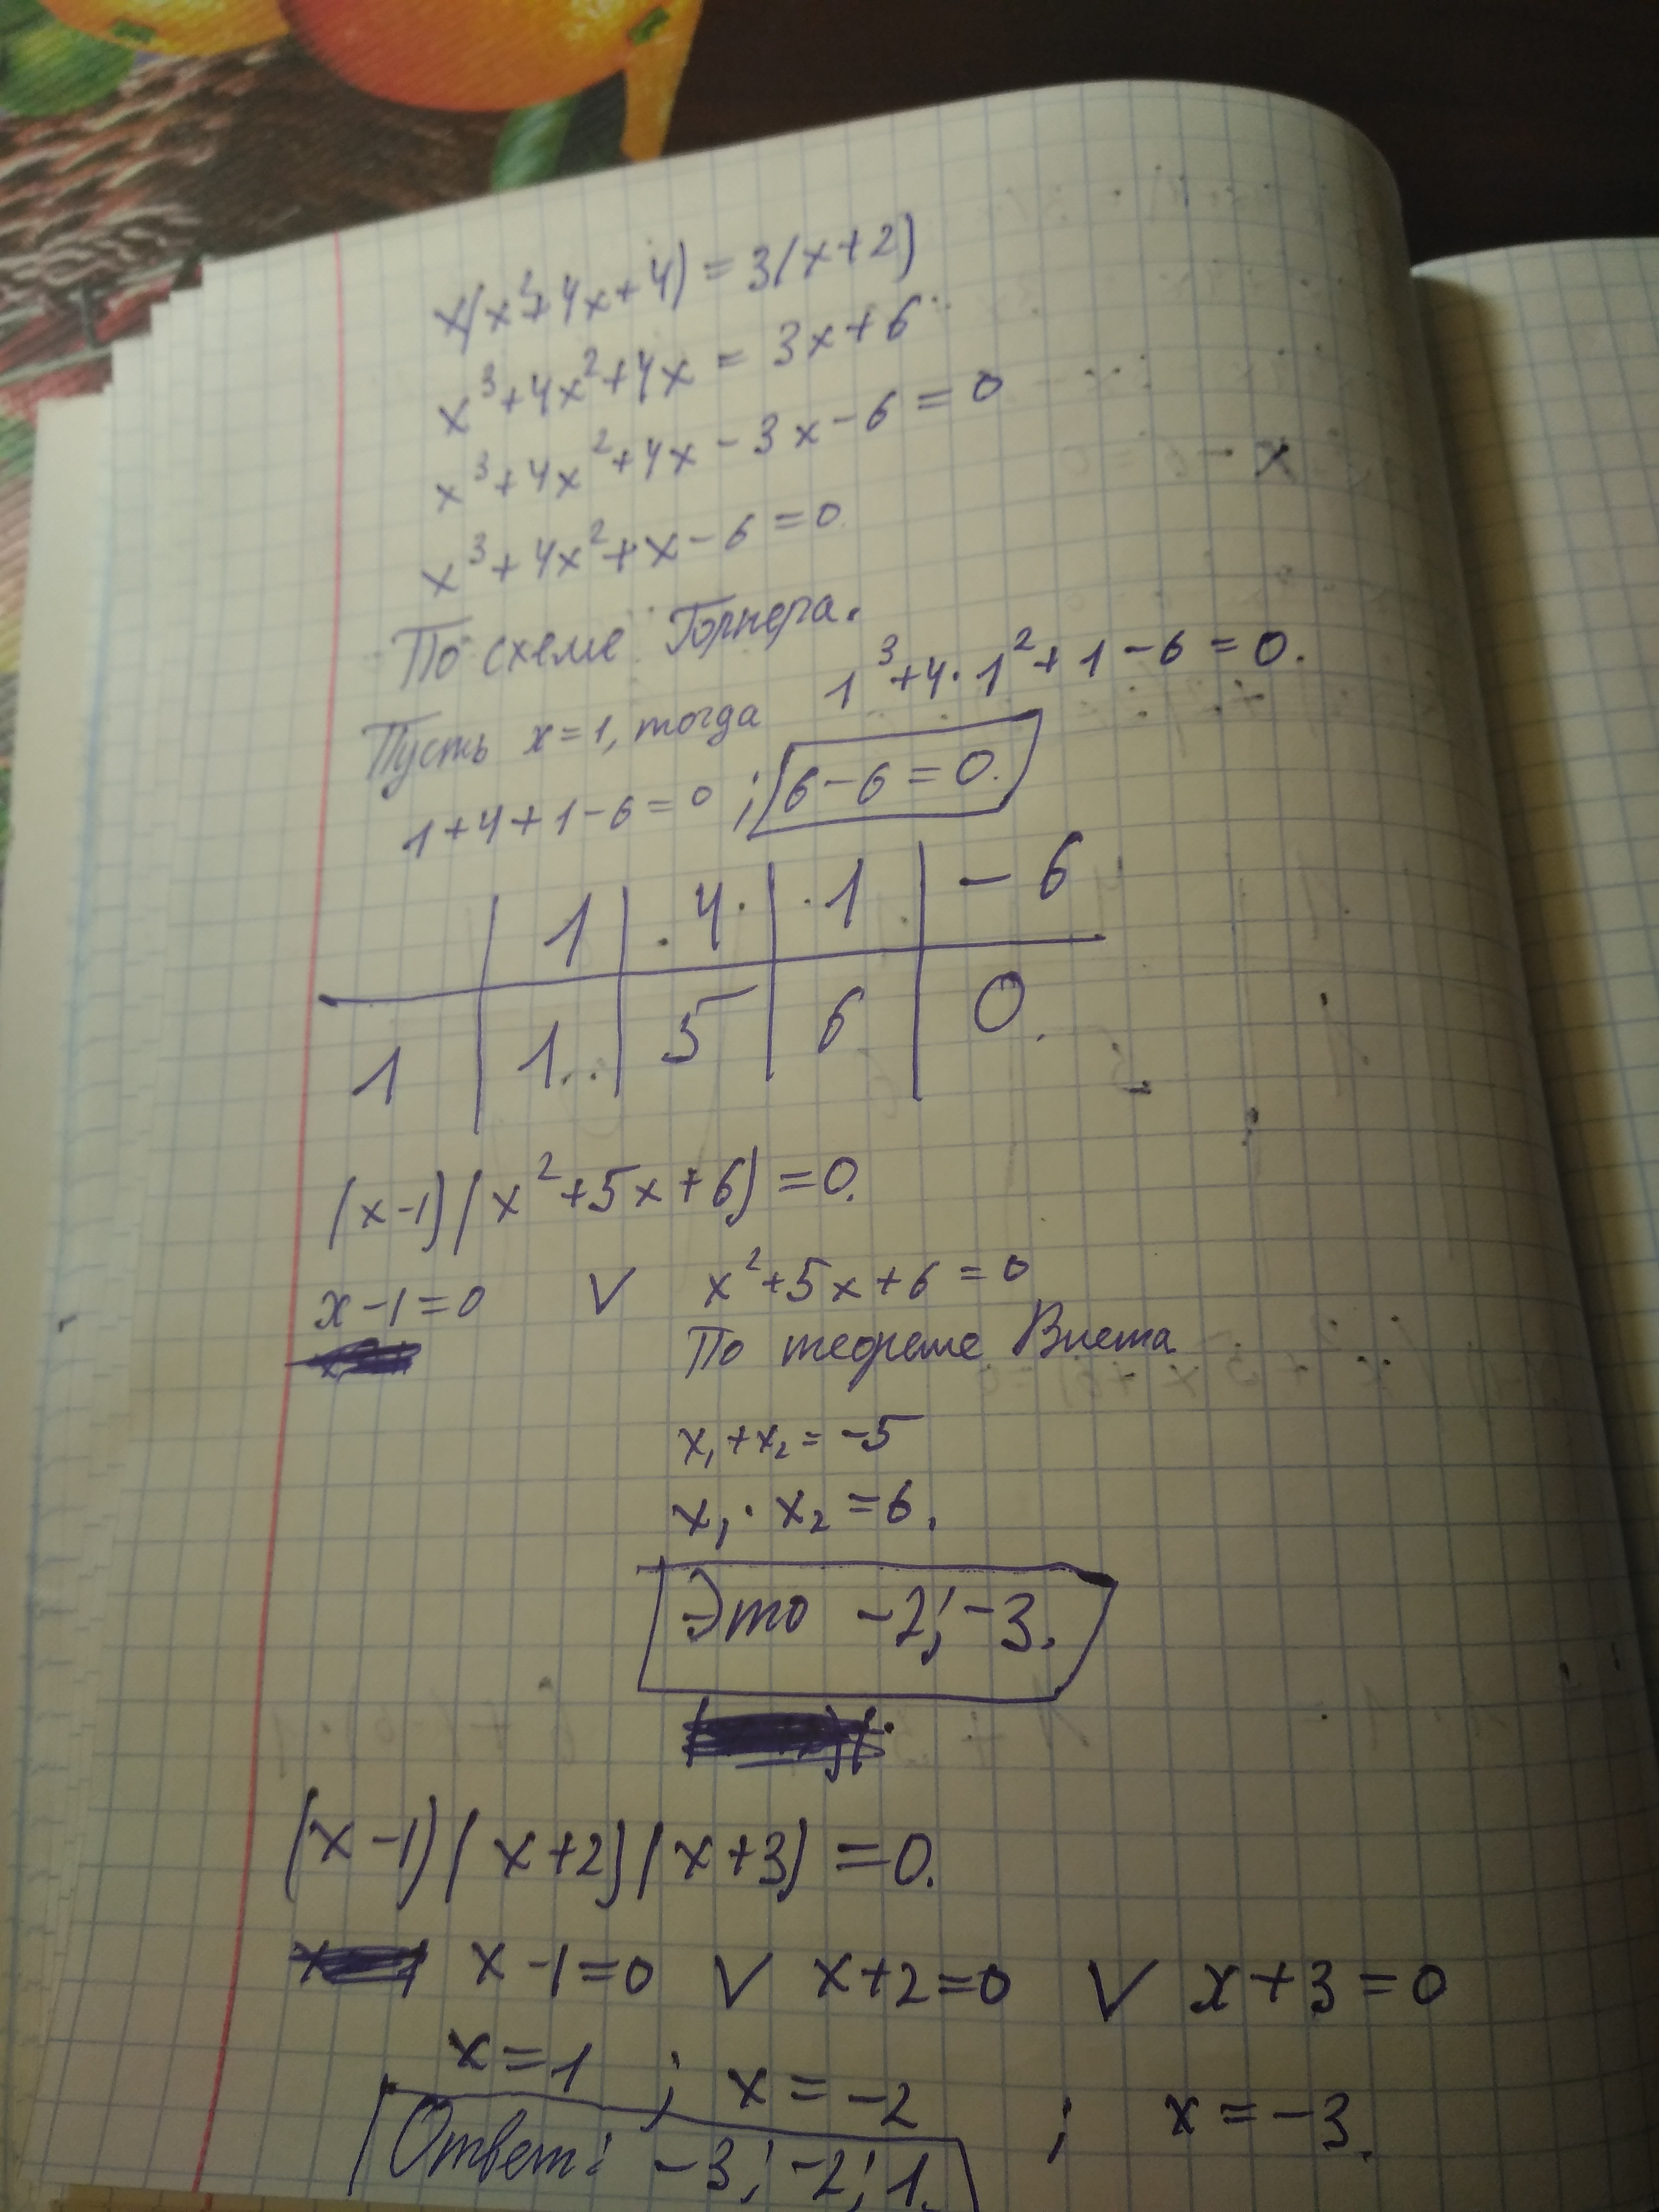 x(x²+4x+4) = 3(x+2)
x³+4x²+4x = 3x+6
x³+4x²+4x-3x-6=0
x³+4x²+x-6=0
По схеме Горнера.
Пусть x=1, тогда 1³+4·1²+1-6=0.
1+4+1-6=0; 6-6=0.
1 4 1 -6
1 1 5 6 0.
(x-1)(x²+5x+6)=0.
x-1=0 V x²+5x+6=0
По теореме Виета
x₁+x₂=-5
x₁·x₂=6.
Это -2; -3.
(x-1)(x+2)(x+3)=0.
x-1=0 V x+2=0 V x+3=0
x=1 ; x=-2 ; x=-3.
Ответ: -3; -2; 1.